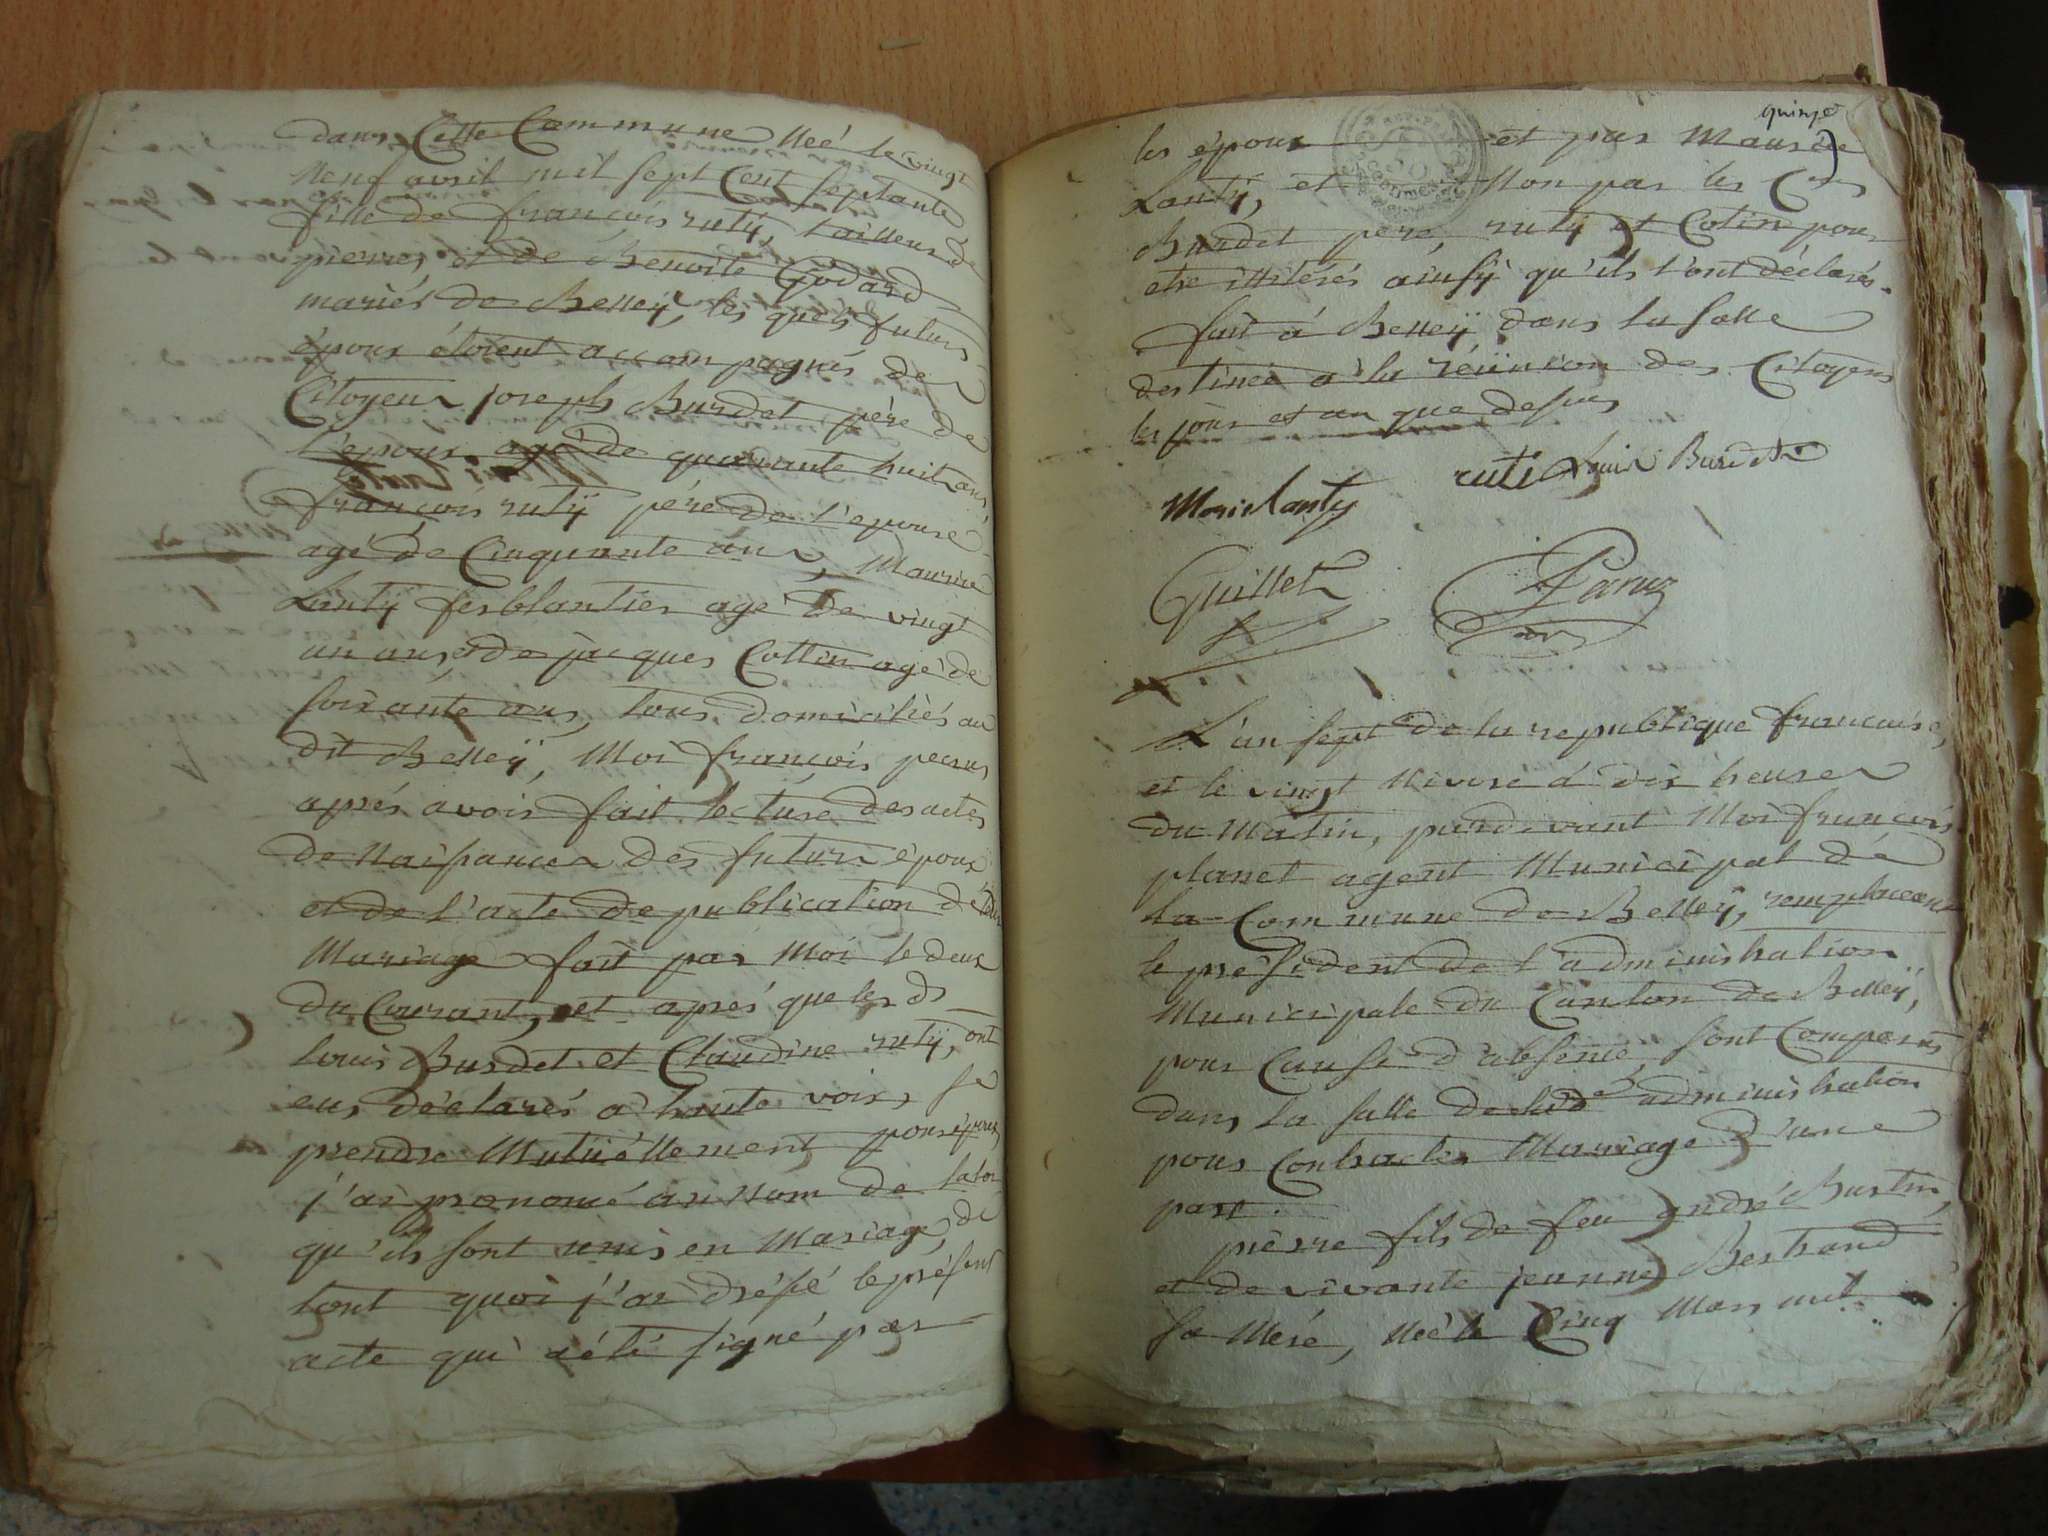 dans Cette Commune Neé le vingt
Neuf avril mil sept Cent septante
fille de françois rutÿ, tailleur de
pierres et de Benoite Godard
mariés de Belleÿ, les quels futurs
époux étoient accompagnés de
Citoyens joseph Burdet père de
l'epoux agé de quarante huit ans,
françois rutÿ père de l'epouse
agé de Cinquante ans, Maurice
Lantÿ ferblantier agé de vingt
un ans, et de jacques Cottin agé de
soixante ans, tous domiciliés au
dit Belleÿ, Moi françois
après avoir fait lecture des actes
de Naissances des futurs époux
et de l'acte de publication de
Mariage fait par Moi le deux
du Courant, et après que les ds
louis Burdet et Claudine rutÿ, ont
eus déclarés à haute voix, se
prendre Mutüéllement pour époux
j'ai prononcé au Nom de la loi
qu'ils sont unis en Mariage, de
tout quoi j'ai drésé le présent
acte qui à été signé par
quinze
les époux et par Maurice
Lantÿ, et Non par les Cens
Burdet pere, rutÿ et Cotin pour
etre illiterés ainsÿ qu'ils l'ont déclarés.
fait à Belleÿ dans la salle
destinee à la réünion des Citoyens
les jour et an que desus
ruti Louis Burdet
Moris lanty
Guillet
L'an sept de la republique francaise,
et le vingt Nivose à dix heures
du Matin, pardevant Moi françois
planet agent Municipal de
la Commune de Belleÿ, remplaceant
le président de l'administration
Municipale du Canton de Belleÿ,
pour Cause d'absence, sont Comparus
dans la salle de lade administration
pour Contracter Mariage d'une
part.
pierre fils de feu andré Burtin,
et de vivante jeanne Bertrand
sa Mére, Né le Cinq Mars mil